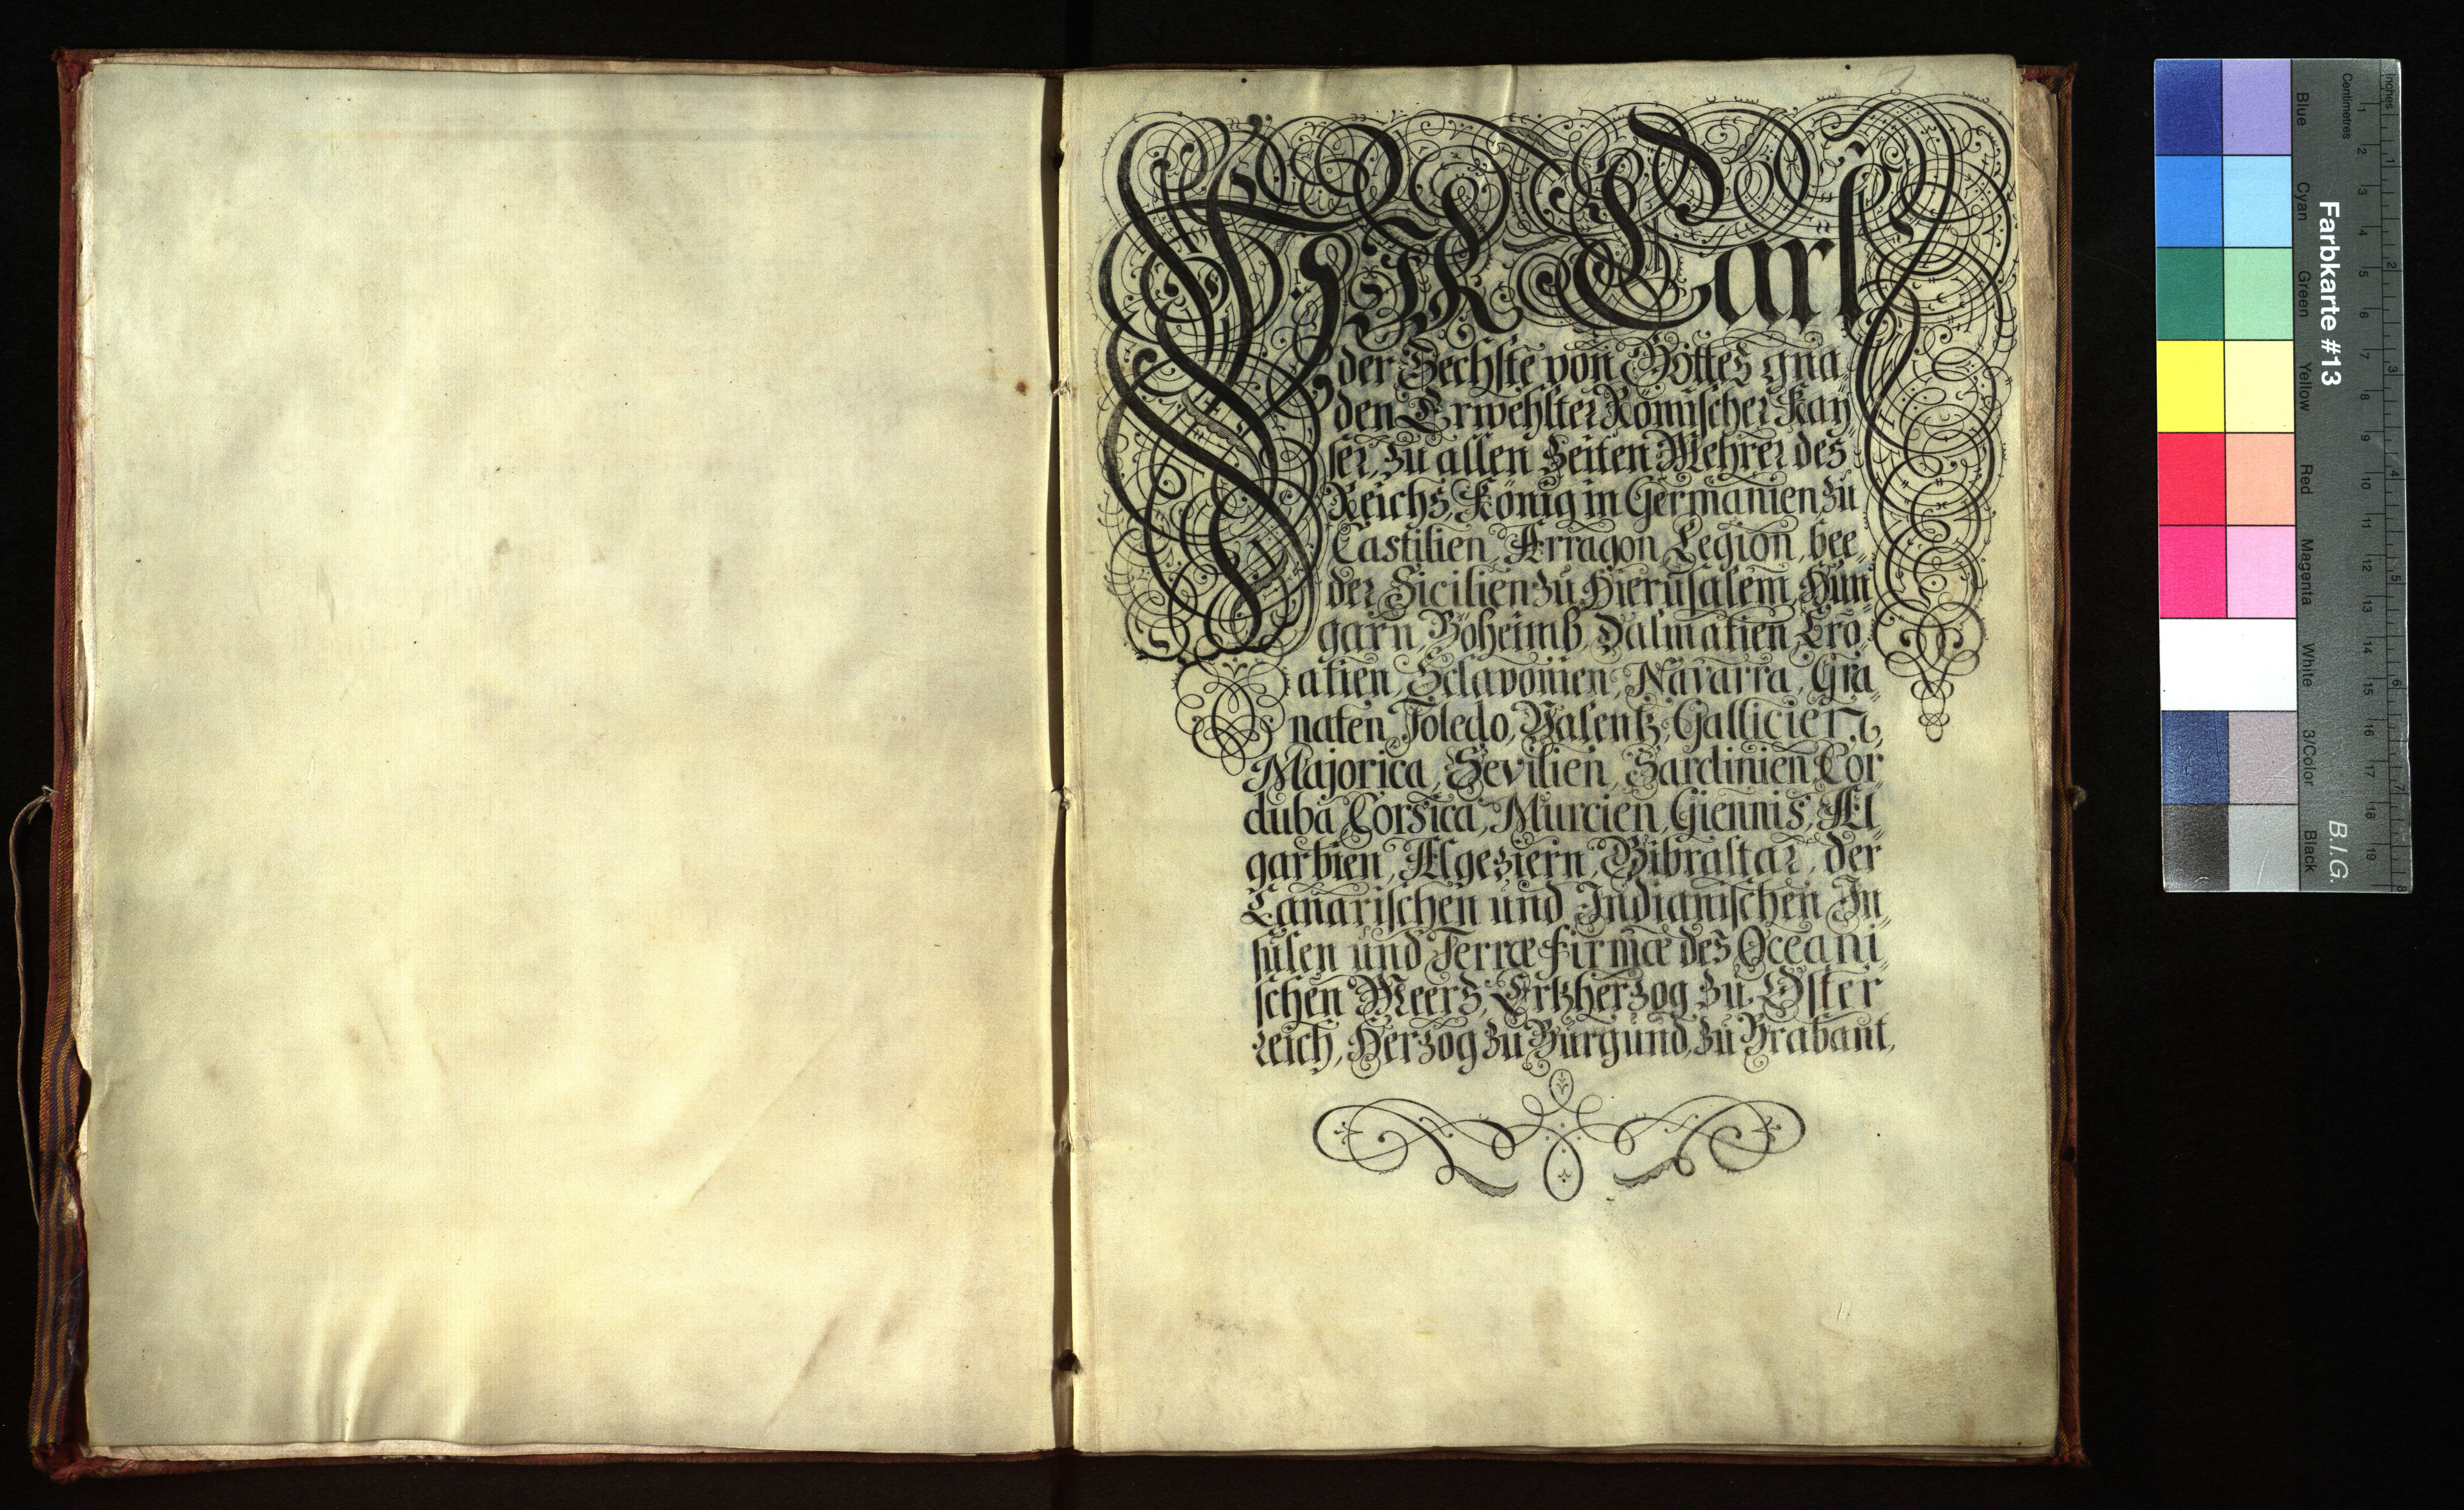 WIR Carl
der Sechste von Gottes gna„
den Erwehlter Römischer Kay„
ser, zu allen Zeiten Mehrer des
Reichs, König in Germanien zu
Castilien, Arragon, Legion, bee„
der Sicilien zu Hierusalem, Hun„
garn, Böheimb, Dalmatien, Cro„
atien, Sclavonien, Navarra, Gra„
naten, Toledo, Valentz, Gallicien,
Majorica, Sevilien, Sardinien, Cor„
duba, Corsica, Murcien, Giennis, Al„
garbien, Algeziern, Gibraltar, der
Canarischen und Indianischen In„
sulen und Terræ firmæ des Oceani„
schen Meers, Ertzherzog zu Oster„
reich, Herzog zu Burgund, zu Brabant,
Farbkarte #13
B.I.G.
Inches
Centimetres
1 2 3 4 5 6 7 8
1 2 3 4 5 6 7 8 9 10 11 12 13 14 15 16 17 18 19
Blue Cyan Green Yellow Red Magenta White 3/Color Black